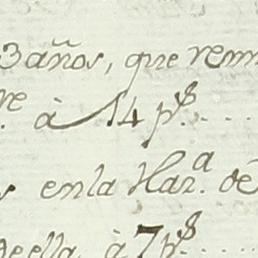 3 años, que rem
re à 14 p.s
en la Haz.a de
de ella, à 7 p.s